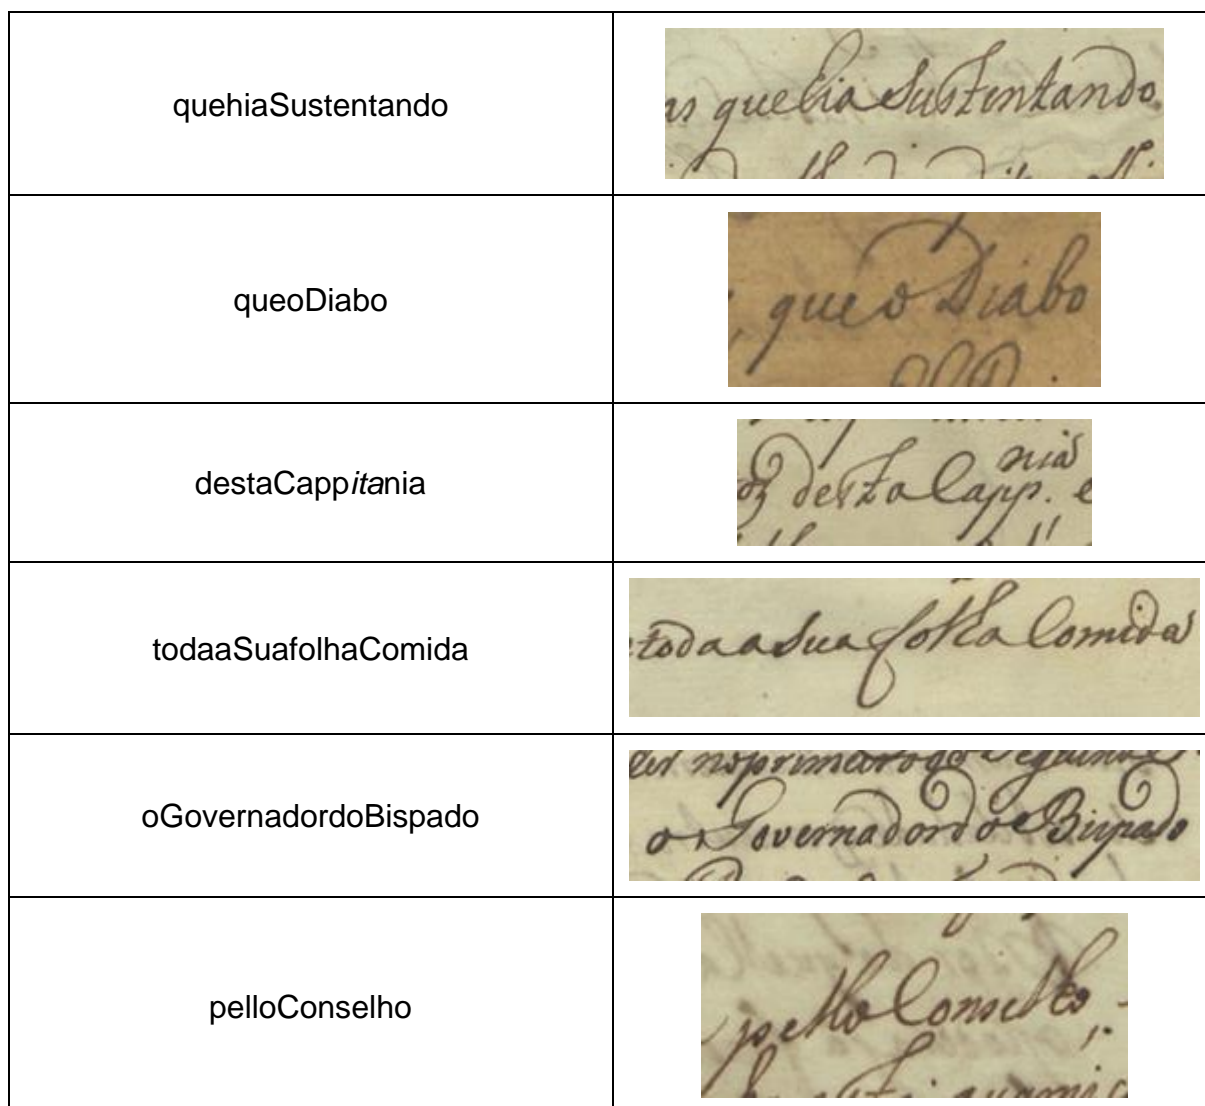 quehiaSustentando
as quehia Sustentando
queoDiabo
, queo Diabo
destaCappitania
desta Capp.nia e
todaaSuafolhaComida
todaaSua folha Comida
oGovernadordoBispado
noprimeiro do Seguinte
o Governadordo Bispado
pelloConselho
pello Conselho